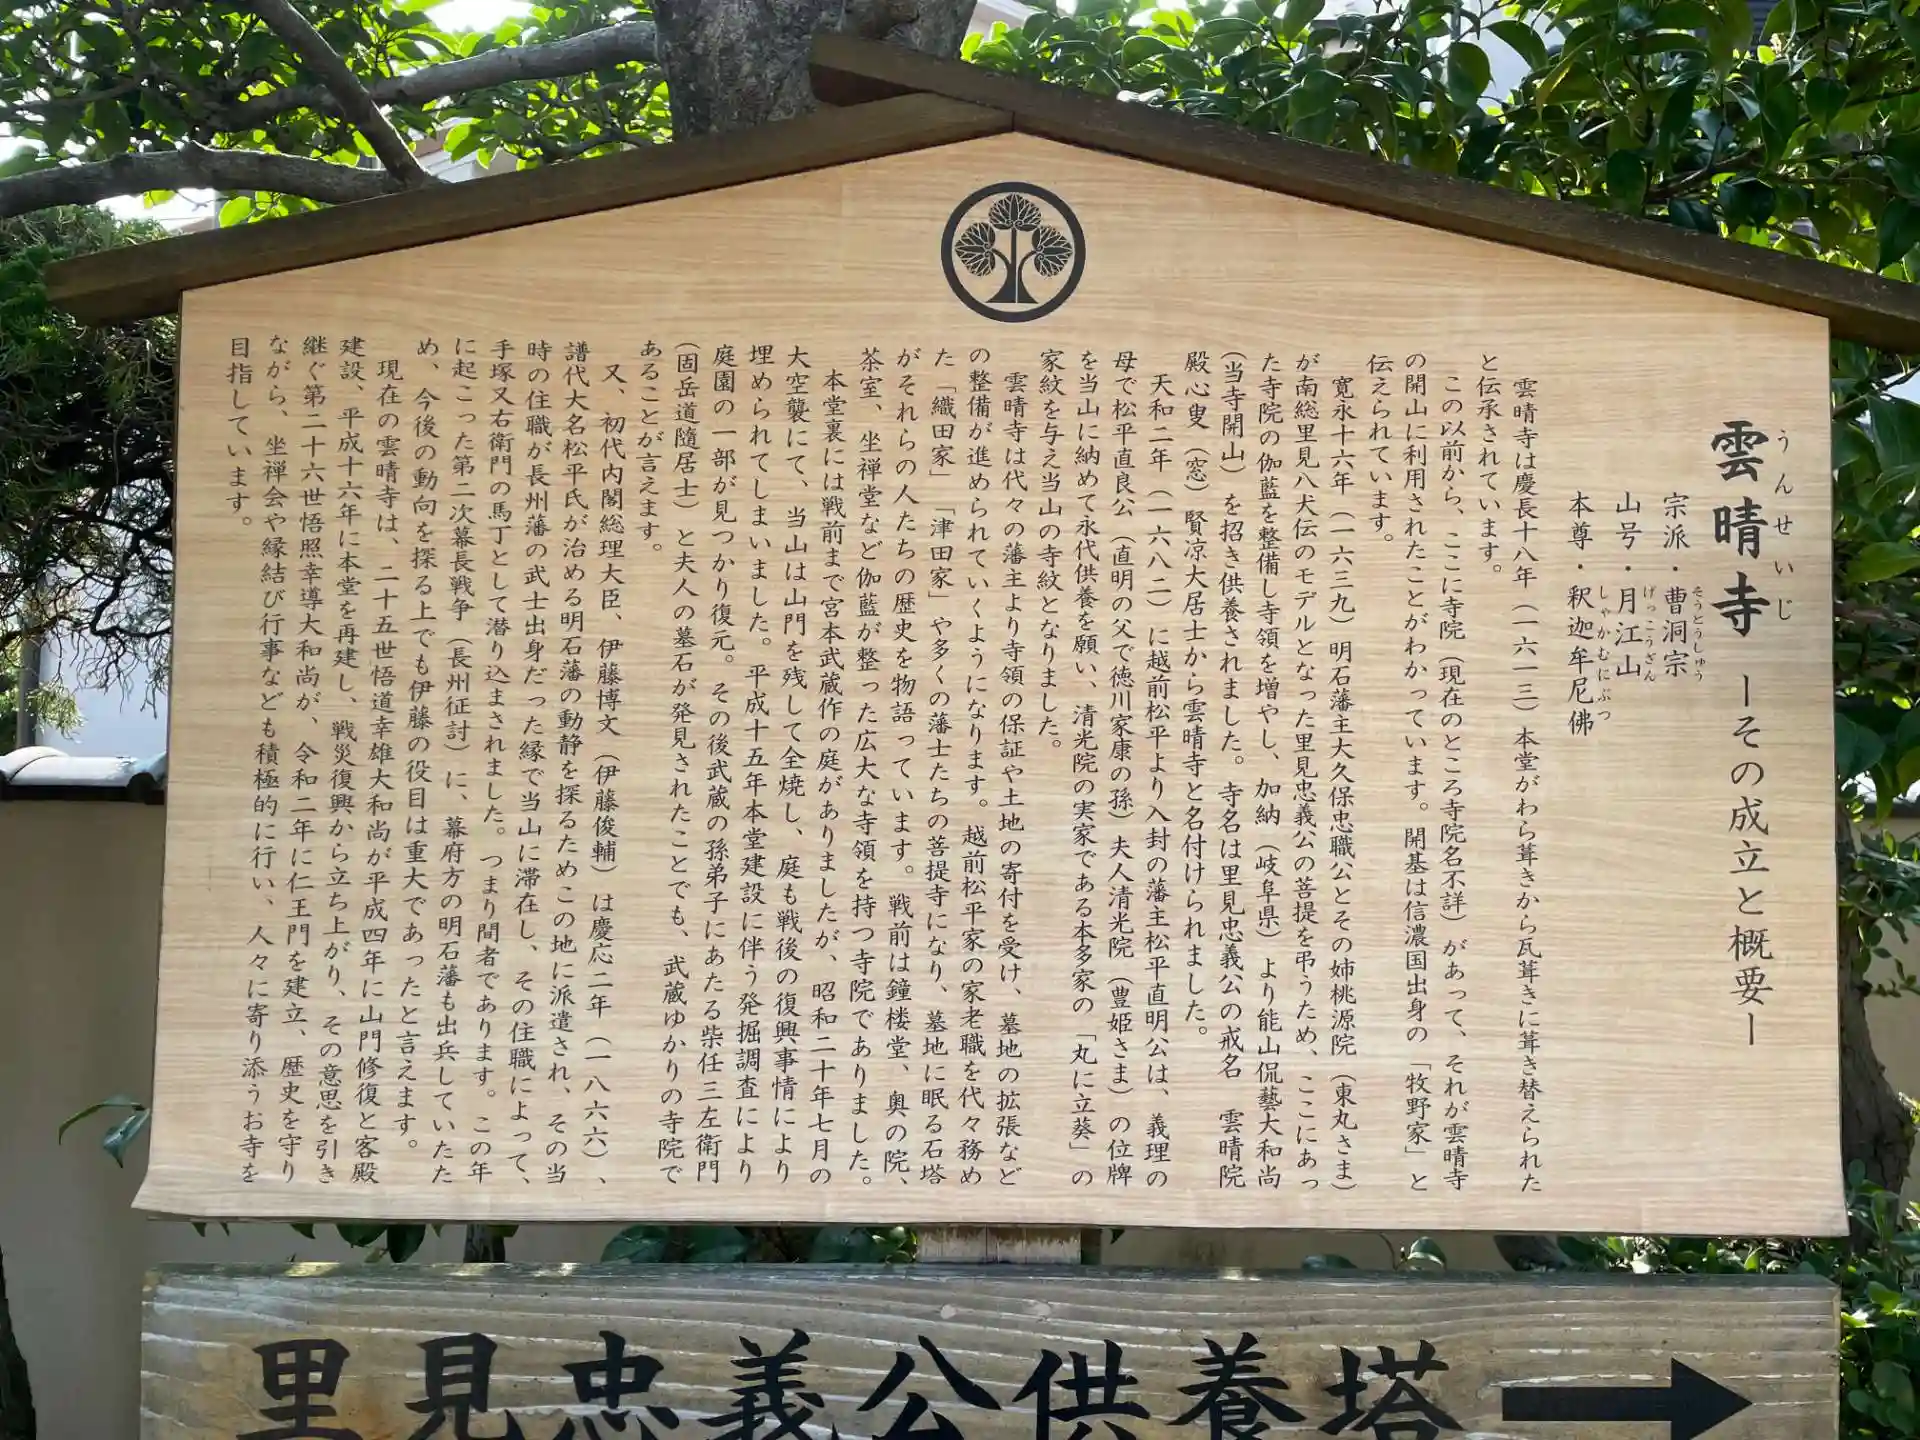 雲晴寺 ーその成立と概要ー
うんせいじ
宗派・曹洞宗
そうとうしゅう
山号・月江山
げっこうざん
本尊・釈迦牟尼佛
しゃかむにぶつ
雲晴寺は慶長十八年（一六一三）本堂がわら葺きから瓦葺きに葺き替えられた
と伝承されています。
この以前から、ここに寺院（現在のところ寺院名不詳）があって、それが雲晴寺
の開山に利用されたことがわかっています。開基は信濃国出身の「牧野家」と
伝えられています。
寛永十六年（一六三九）明石藩主大久保忠職公とその姉桃源院（東丸さま）
が南総里見八犬伝のモデルとなった里見忠義公の菩提を弔うため、ここにあっ
た寺院の伽藍を整備し寺領を増やし、加納（岐阜県）より能山侃藝大和尚
（当寺開山）を招き供養されました。寺名は里見忠義公の戒名 雲晴院
殿心叟（窓）賢涼大居士から雲晴寺と名付けられました。
天和二年（一六八二）に越前松平より入封の藩主松平直明公は、義理の
母で松平直良公（直明の父で徳川家康の孫）夫人清光院（豊姫さま）の位牌
を当山に納めて永代供養を願い、清光院の実家である本多家の「丸に立葵」の
家紋を与え当山の寺紋となりました。
雲晴寺は代々の藩主より寺領の保証や土地の寄付を受け、墓地の拡張など
の整備が進められていくようになります。越前松平家の家老職を代々務め
た「織田家」「津田家」や多くの藩士たちの菩提寺になり、墓地に眠る石塔
がそれらの人たちの歴史を物語っています。戦前は鐘楼堂、奥の院、
茶室、坐禅堂など伽藍が整った広大な寺領を持つ寺院でありました。
本堂裏には戦前まで宮本武蔵作の庭がありましたが、昭和二十年七月の
大空襲にて、当山は山門を残して全焼し、庭も戦後の復興事情により
埋められてしまいました。平成十五年本堂建設に伴う発掘調査により
庭園の一部が見つかり復元。その後武蔵の孫弟子にあたる柴任三左衛門
（固岳道随居士）と夫人の墓石が発見されたことでも、武蔵ゆかりの寺院で
あることが言えます。
又、初代内閣総理大臣、伊藤博文（伊藤俊輔）は慶応二年（一八六六）、
譜代大名松平氏が治める明石藩の動静を探るためこの地に派遣され、その当
時の住職が長州藩の武士出身だった縁で当山に滞在し、その住職によって、
手塚又右衛門の馬丁として潜り込まされました。つまり間者であります。この年
に起こった第二次幕長戦争（長州征討）に、幕府方の明石藩も出兵していたた
め、今後の動向を探る上でも伊藤の役目は重大であったと言えます。
現在の雲晴寺は、二十五世悟道幸雄大和尚が平成四年に山門修復と客殿
建設、平成十六年に本堂を再建し、戦災復興から立ち上がり、その意思を引き
継ぐ第二十六世悟照幸導大和尚が、令和二年に仁王門を建立、歴史を守り
ながら、坐禅会や縁結び行事なども積極的に行い、人々に寄り添うお寺を
目指しています。
里見忠義公供養塔→